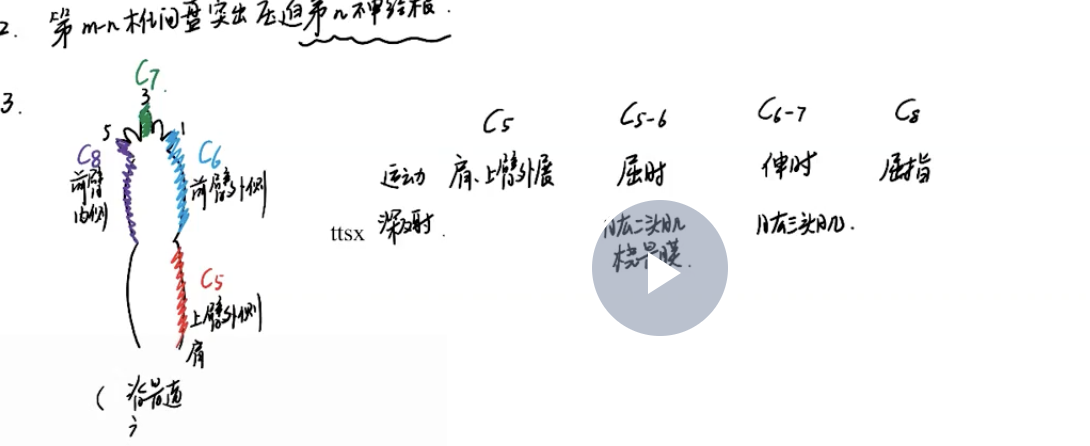 2. 第 m-n 椎间盘突出压迫第 n 神经根.
3.
C7
3
5 1
C8 前臂内侧
C6 前臂外侧
C5 上臂外侧 肩
C5 C5-6 C6-7 C8
运动 肩、上臂外展 屈肘 伸肘 屈指
ttsx 深反射. 肱二头肌 肱三头肌.
桡骨膜.